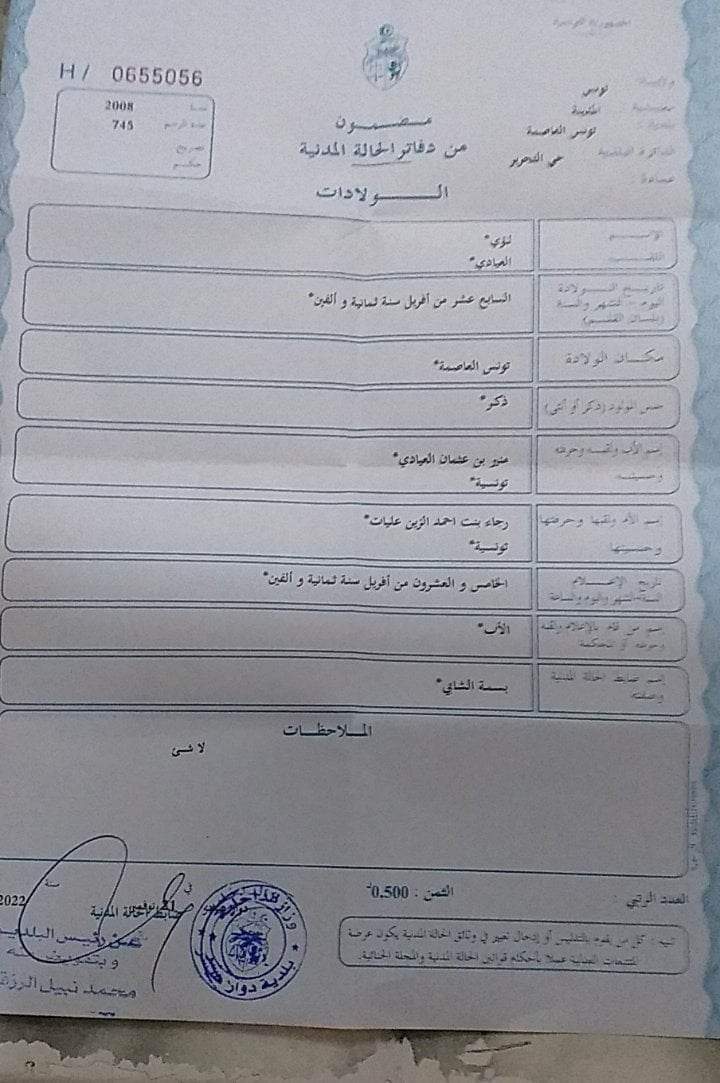 الجمهورية التونسية
H/ 0655056
ولاية : تونس
معتمدية : المدينة
بلدية : تونس العاصمة
الدائرة البلدية حي التحرير
عمادة :
سنة 2008
عدد الرسم 745
تصريح
حكم
مضمون
من دفاتر الحالة المدنية
الولادات
الإسم لؤي*
اللقب العيادي*
تاريخ الولادة
اليوم - الشهر والسنة
(بلسان القلم)
السابع عشر من أفريل سنة ثمانية و ألفين*
مكان الولادة تونس العاصمة*
جنس المولود (ذكر أو أنثى) ذكر*
إسم الأب ولقبه وحرفته منير بن عثمان العيادي*
وجنسيته تونسية*
إسم الأم ولقبها وحرفتها رجاء بنت احمد الزين عليات*
وجنسيتها تونسية*
تاريخ الإعلام
السنة-الشهر واليوم والساعة
الخامس و العشرون من أفريل سنة ثمانية و ألفين*
إسم من قام بالإعلام ولقبه
وحرفته أو المحكمة
الأب*
إسم ضابط الحالة المدنية
وصفته
بسمة الشابي*
الملاحظات
لا شئ
العدد الرتبي :
الثمن : 0.500د
تنبيه : كل من يقوم بالتدليس أو إدخال تغيير في وثائق الحالة المدنية يكون عرضة
للتتبعات العدلية عملا بأحكام قوانين الحالة المدنية والمجلة الجنائية.
في 21 نوفمبر سنة 2022
ضابط الحالة المدنية
عن رئيس البلدية
و بتفويض منه
محمد نبيل الرزق
وزارة الداخلية
بلدية دوار هيشر